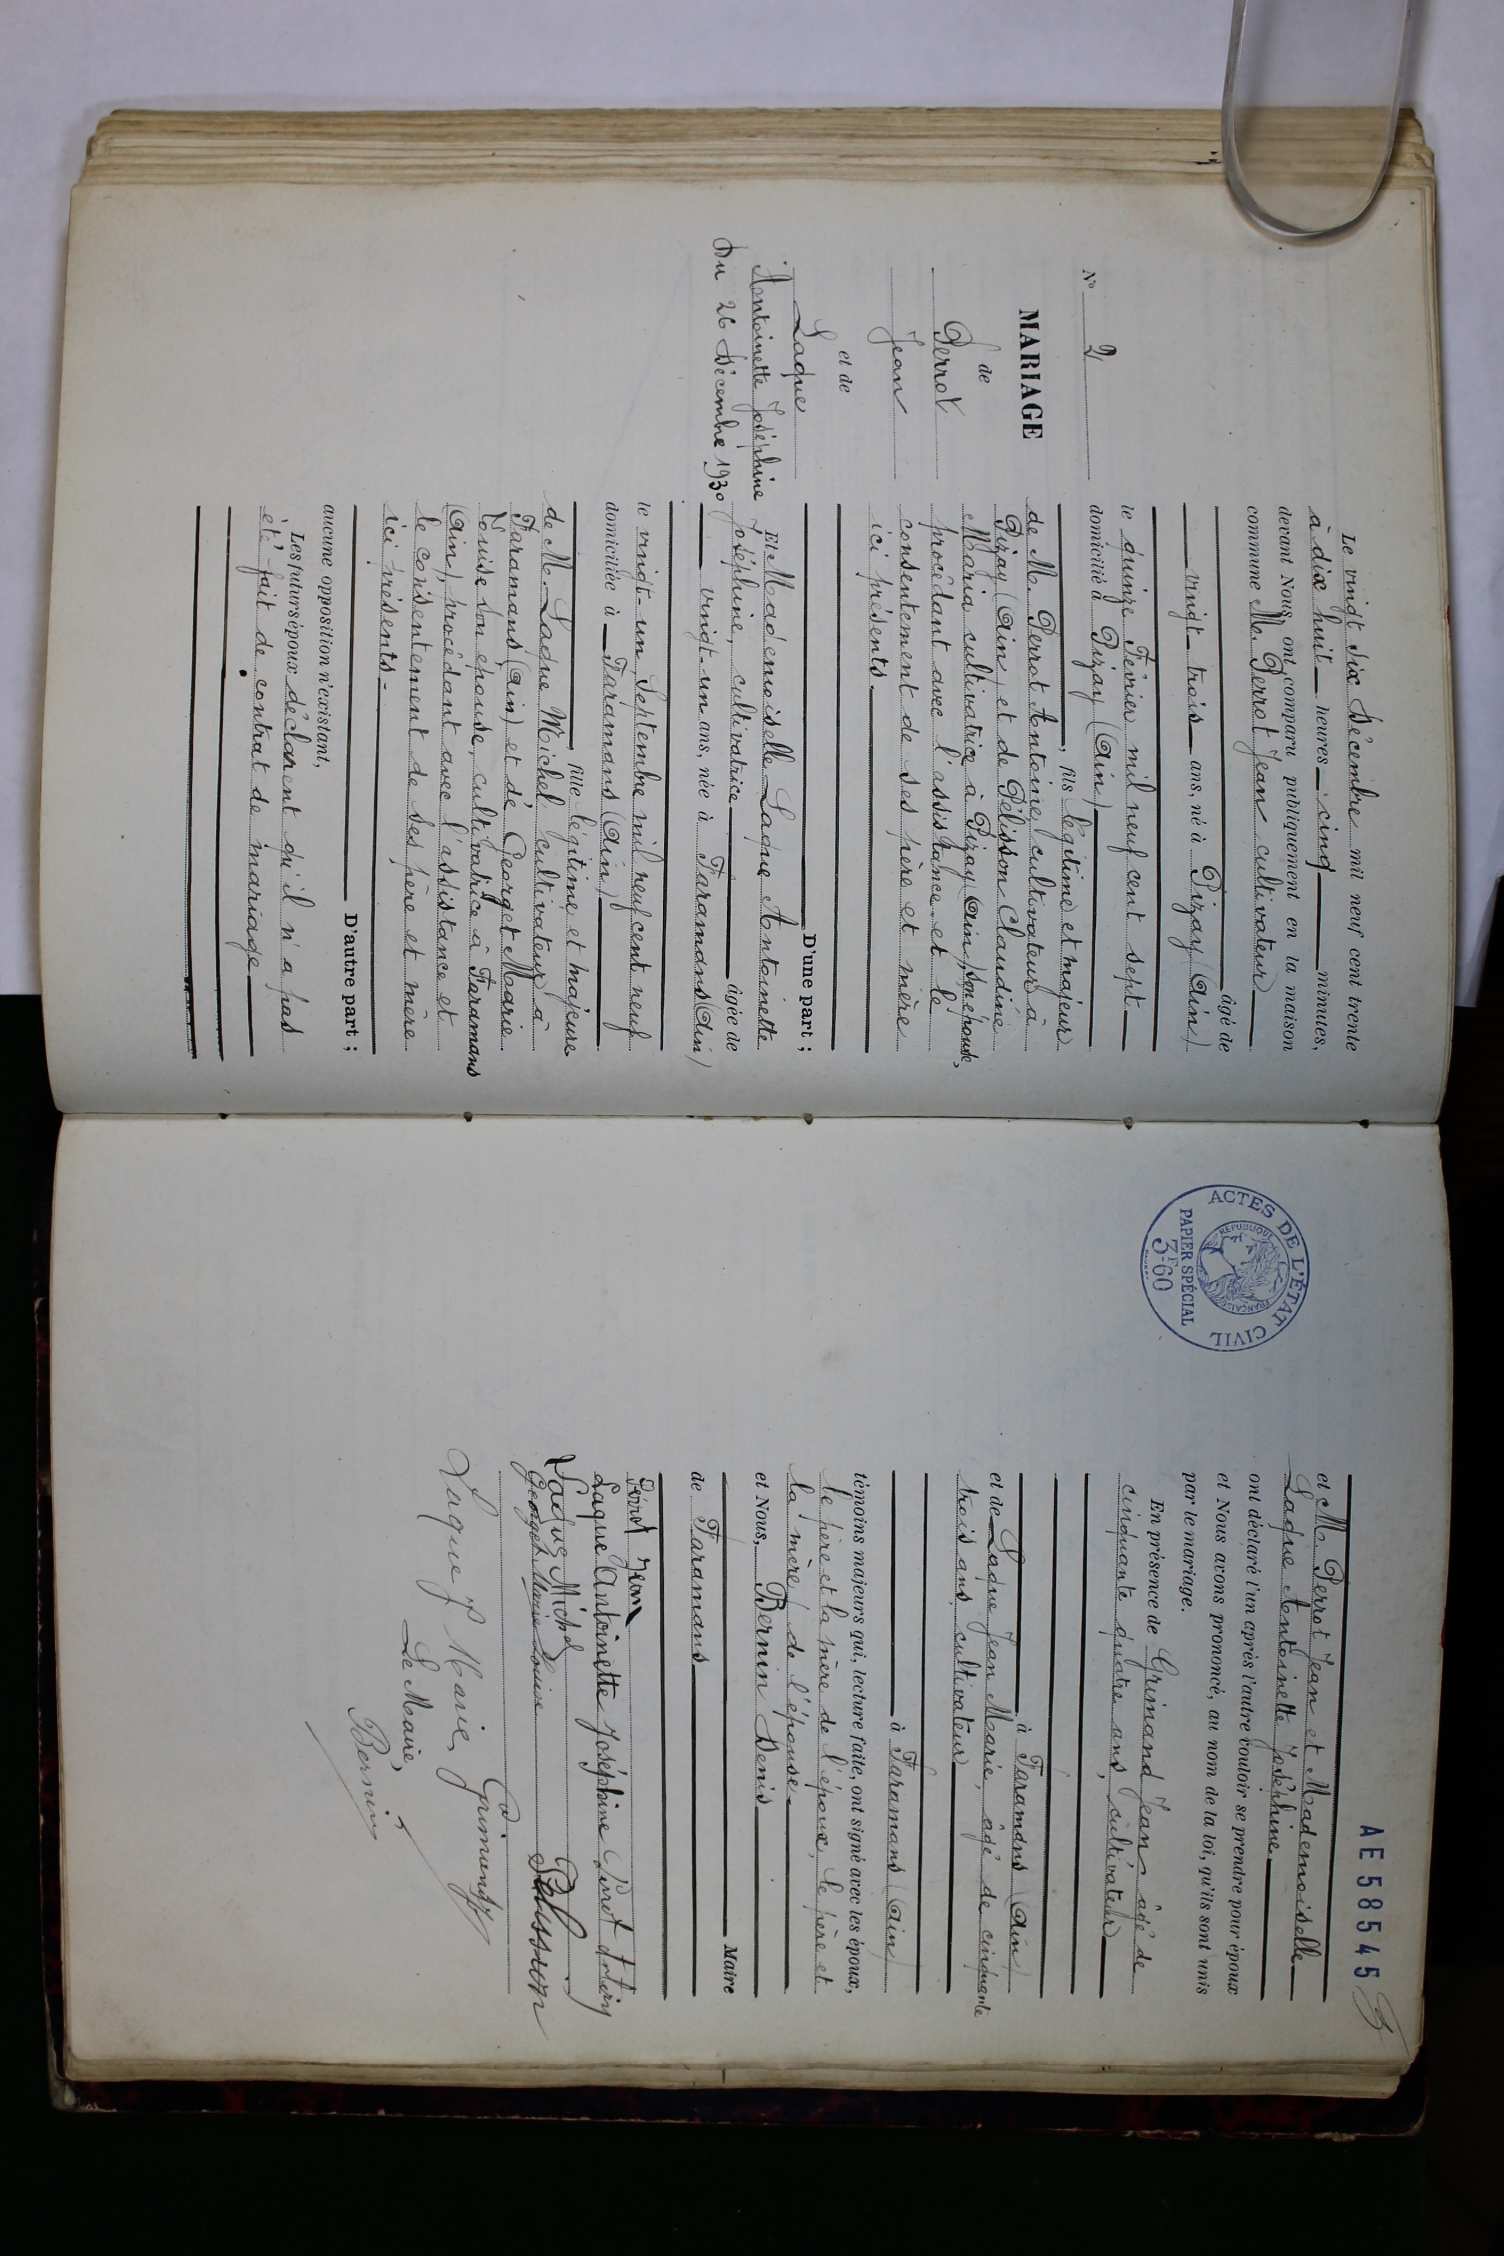 N° 2
MARIAGE
de
Perrot
Jean
et de
Laque
Antoinette Joséphine
Du 26 Décembre 1930
Le vingt six Décembre mil neuf cent trente
à dix huit heures cinq minutes,
devant Nous ont comparu publiquement en la maison
commune M. Perrot Jean cultivateur
âgé de
vingt-trois ans, né à Pizay (Ain)
le quinze Février mil neuf cent sept
domicilié à Pizay (Ain)
, fils légitime et majeur
de M. Perrot Antoine, cultivateur à
Pizay (Ain) et de Pélisson Claudine
Maria cultivatrice à Pizay (Ain), son épouse,
procédant avec l'assistance et le
consentement de ses père et mère
ici présents.
D'une part ;
Et Mademoiselle Laque Antoinette
Joséphine, cultivatrice âgée de
vingt-un ans, née à Faramans (Ain)
le vingt-un Septembre mil neuf cent neuf
domiciliée à Faramans (Ain)
, fille légitime et majeure
de M. Laque Michel cultivateur à
Faramans (Ain) et de Georget Marie
Louise son épouse, cultivatrice à Faramans
(Ain), procédant avec l'assistance et
le consentement de ses père et mère
ici présents.
D'autre part ;
aucune opposition n'existant,
Les futurs époux déclarent qu'il n'a pas
été fait de contrat de mariage
AE58545
ACTES DE L'ÉTAT CIVIL
RÉPUBLIQUE FRANÇAISE
PAPIER SPÉCIAL
3F60
et M. Perrot Jean et Mademoiselle
Laque Antoinette Joséphine
ont déclaré l'un après l'autre vouloir se prendre pour époux
et Nous avons prononcé, au nom de la loi, qu'ils sont unis
par le mariage.
En présence de Grimand Jean âgé de
cinquante quatre ans, cultivateur
à Faramans (Ain)
et de Laque Jean Marie, âgé de cinquante
trois ans, cultivateur
à Faramans (Ain)
témoins majeurs qui, lecture faite, ont signé avec les époux,
le père et la mère de l'époux, le père et
la mère de l'épouse.
et Nous, Bernin Denis
Maire
de Faramans
Perrot Jean
Laque Antoinette Joséphine Perrot
Laque Michel
Georget Marie Louise
Laque J Marie Grimand
Le Maire,
Bernin